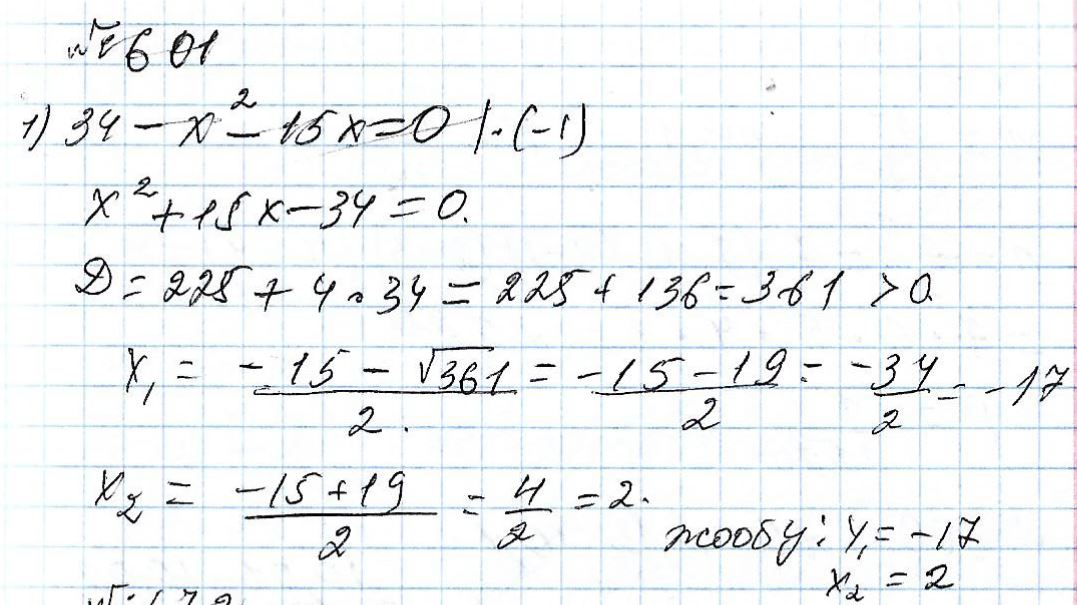 № 601
1) 34 − x² − 15x = 0 | · (−1)
x² + 15x − 34 = 0.
D = 225 + 4 · 34 = 225 + 136 = 361 > 0.
x₁ = (−15 − √361)/2 = (−15 − 19)/2 = −34/2 = −17
x₂ = (−15 + 19)/2 = 4/2 = 2.
жообу: x₁ = −17
x₂ = 2